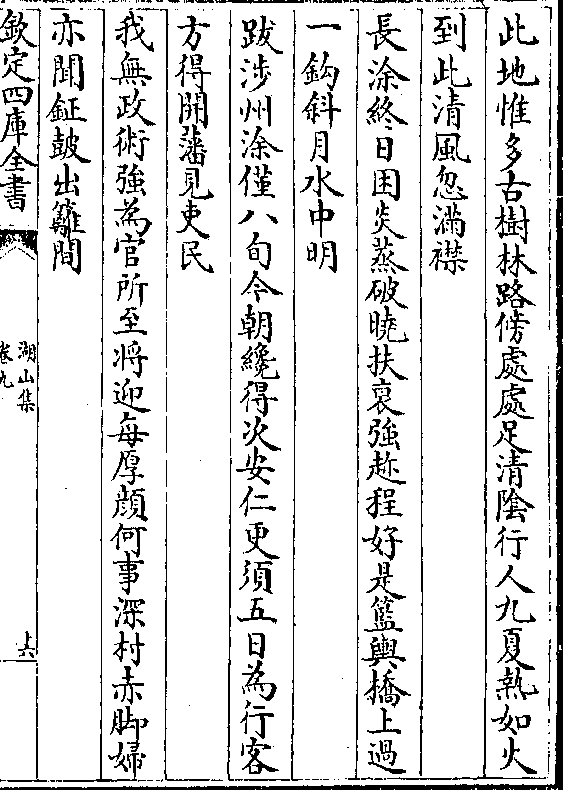 此地惟多古樹林路傍處處足清隂行人九夏執如火
到此清風忽滿襟
長涂終日困炎蒸破曉扶衰強趂程好是籃輿橋上過
一鈎斜月水中明
跋涉州涂僅八旬今朝纔得次安仁更須五日為行客
方得開藩見吏民
我無政術強為官所至将迎每厚顔何事深村赤脚婦
亦聞鉦鼓出籬間
欽定四庫全書
湖山集
卷九
十六